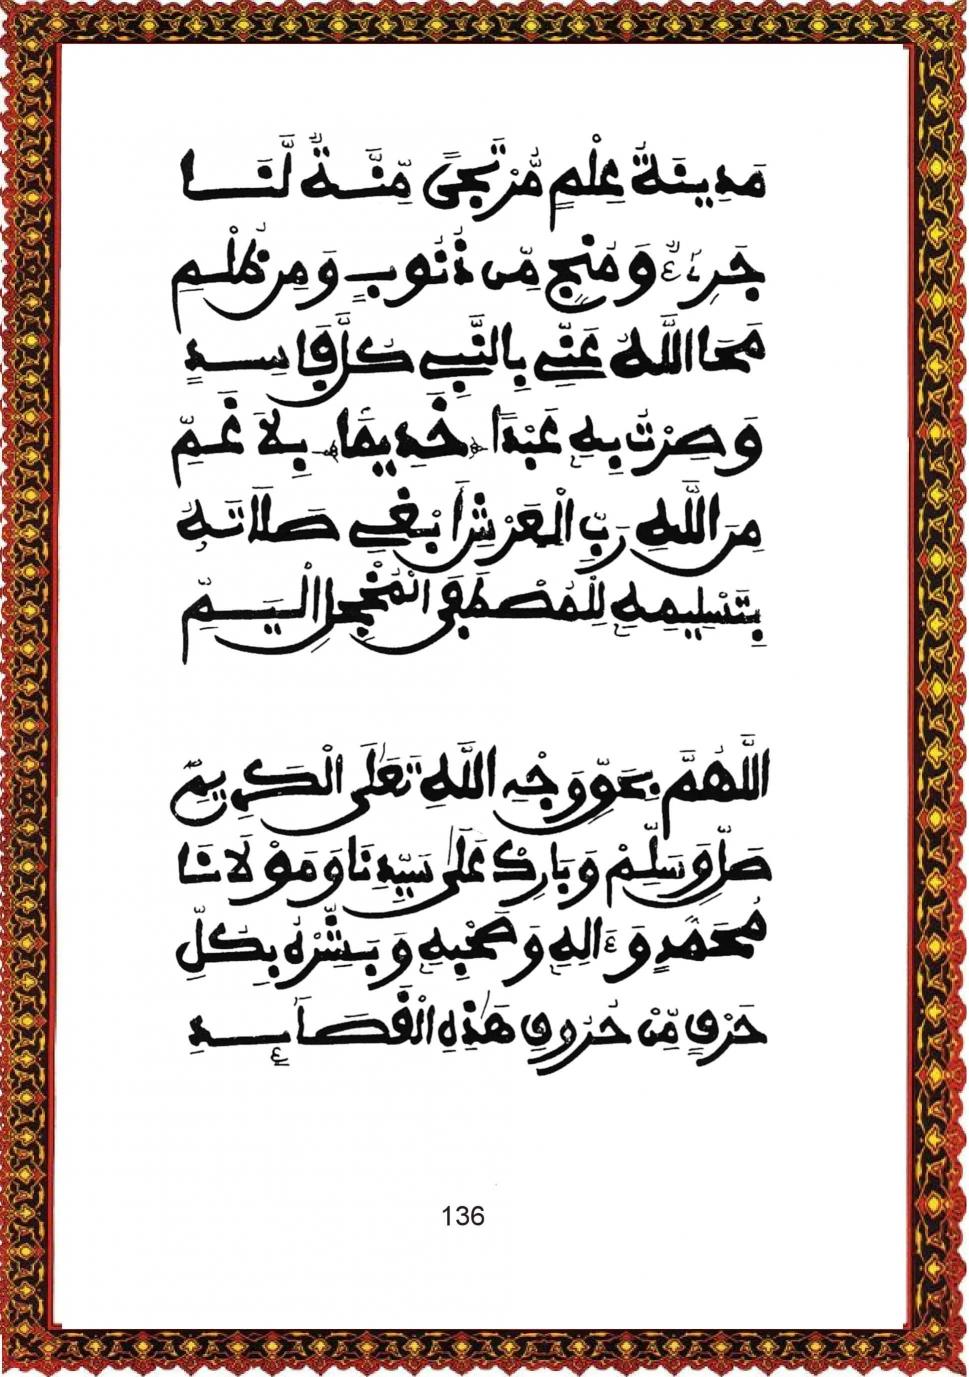 مَدِينَةُ عِلْمٍ مُّرْتَجًى مِّنَّةٌ لَّنَا
جَرِىءٌ وَمُنْجٍ مِّن ذُنُوبٍ وَمِن ظُلْمِ
مَحَا اللَّهُ عَنِّى بِالنَّبِى كُلَّ فَاسِدٍ
وَصِرْتُ بِهِ عَبْدًا خَدِيمًا بِلَا غَمِّ
مِنَ اللَّهِ رَبِّ الْعَرْشِ أَبْغِى صَلَاتَهُ
بِتَسْلِيمِهِ لِلْمُصْطَفَى الْمُخْجِلِ الْيَمِّ
اللَّهُمَّ بِحَقِّ وَجْهِ اللَّهِ تَعَالَى الْكَرِيمِ
صَلِّ وَسَلِّمْ وَبَارِكْ عَلَى سَيِّدِنَا وَمَوْلَانَا
مُحَمَّدٍ وَءَالِهِ وَصَحْبِهِ وَبَشِّرْهُ بِكُلِّ
حَرْفٍ مِّنْ حُرُوفِ هَذِهِ الْقَصَائِدِ
136